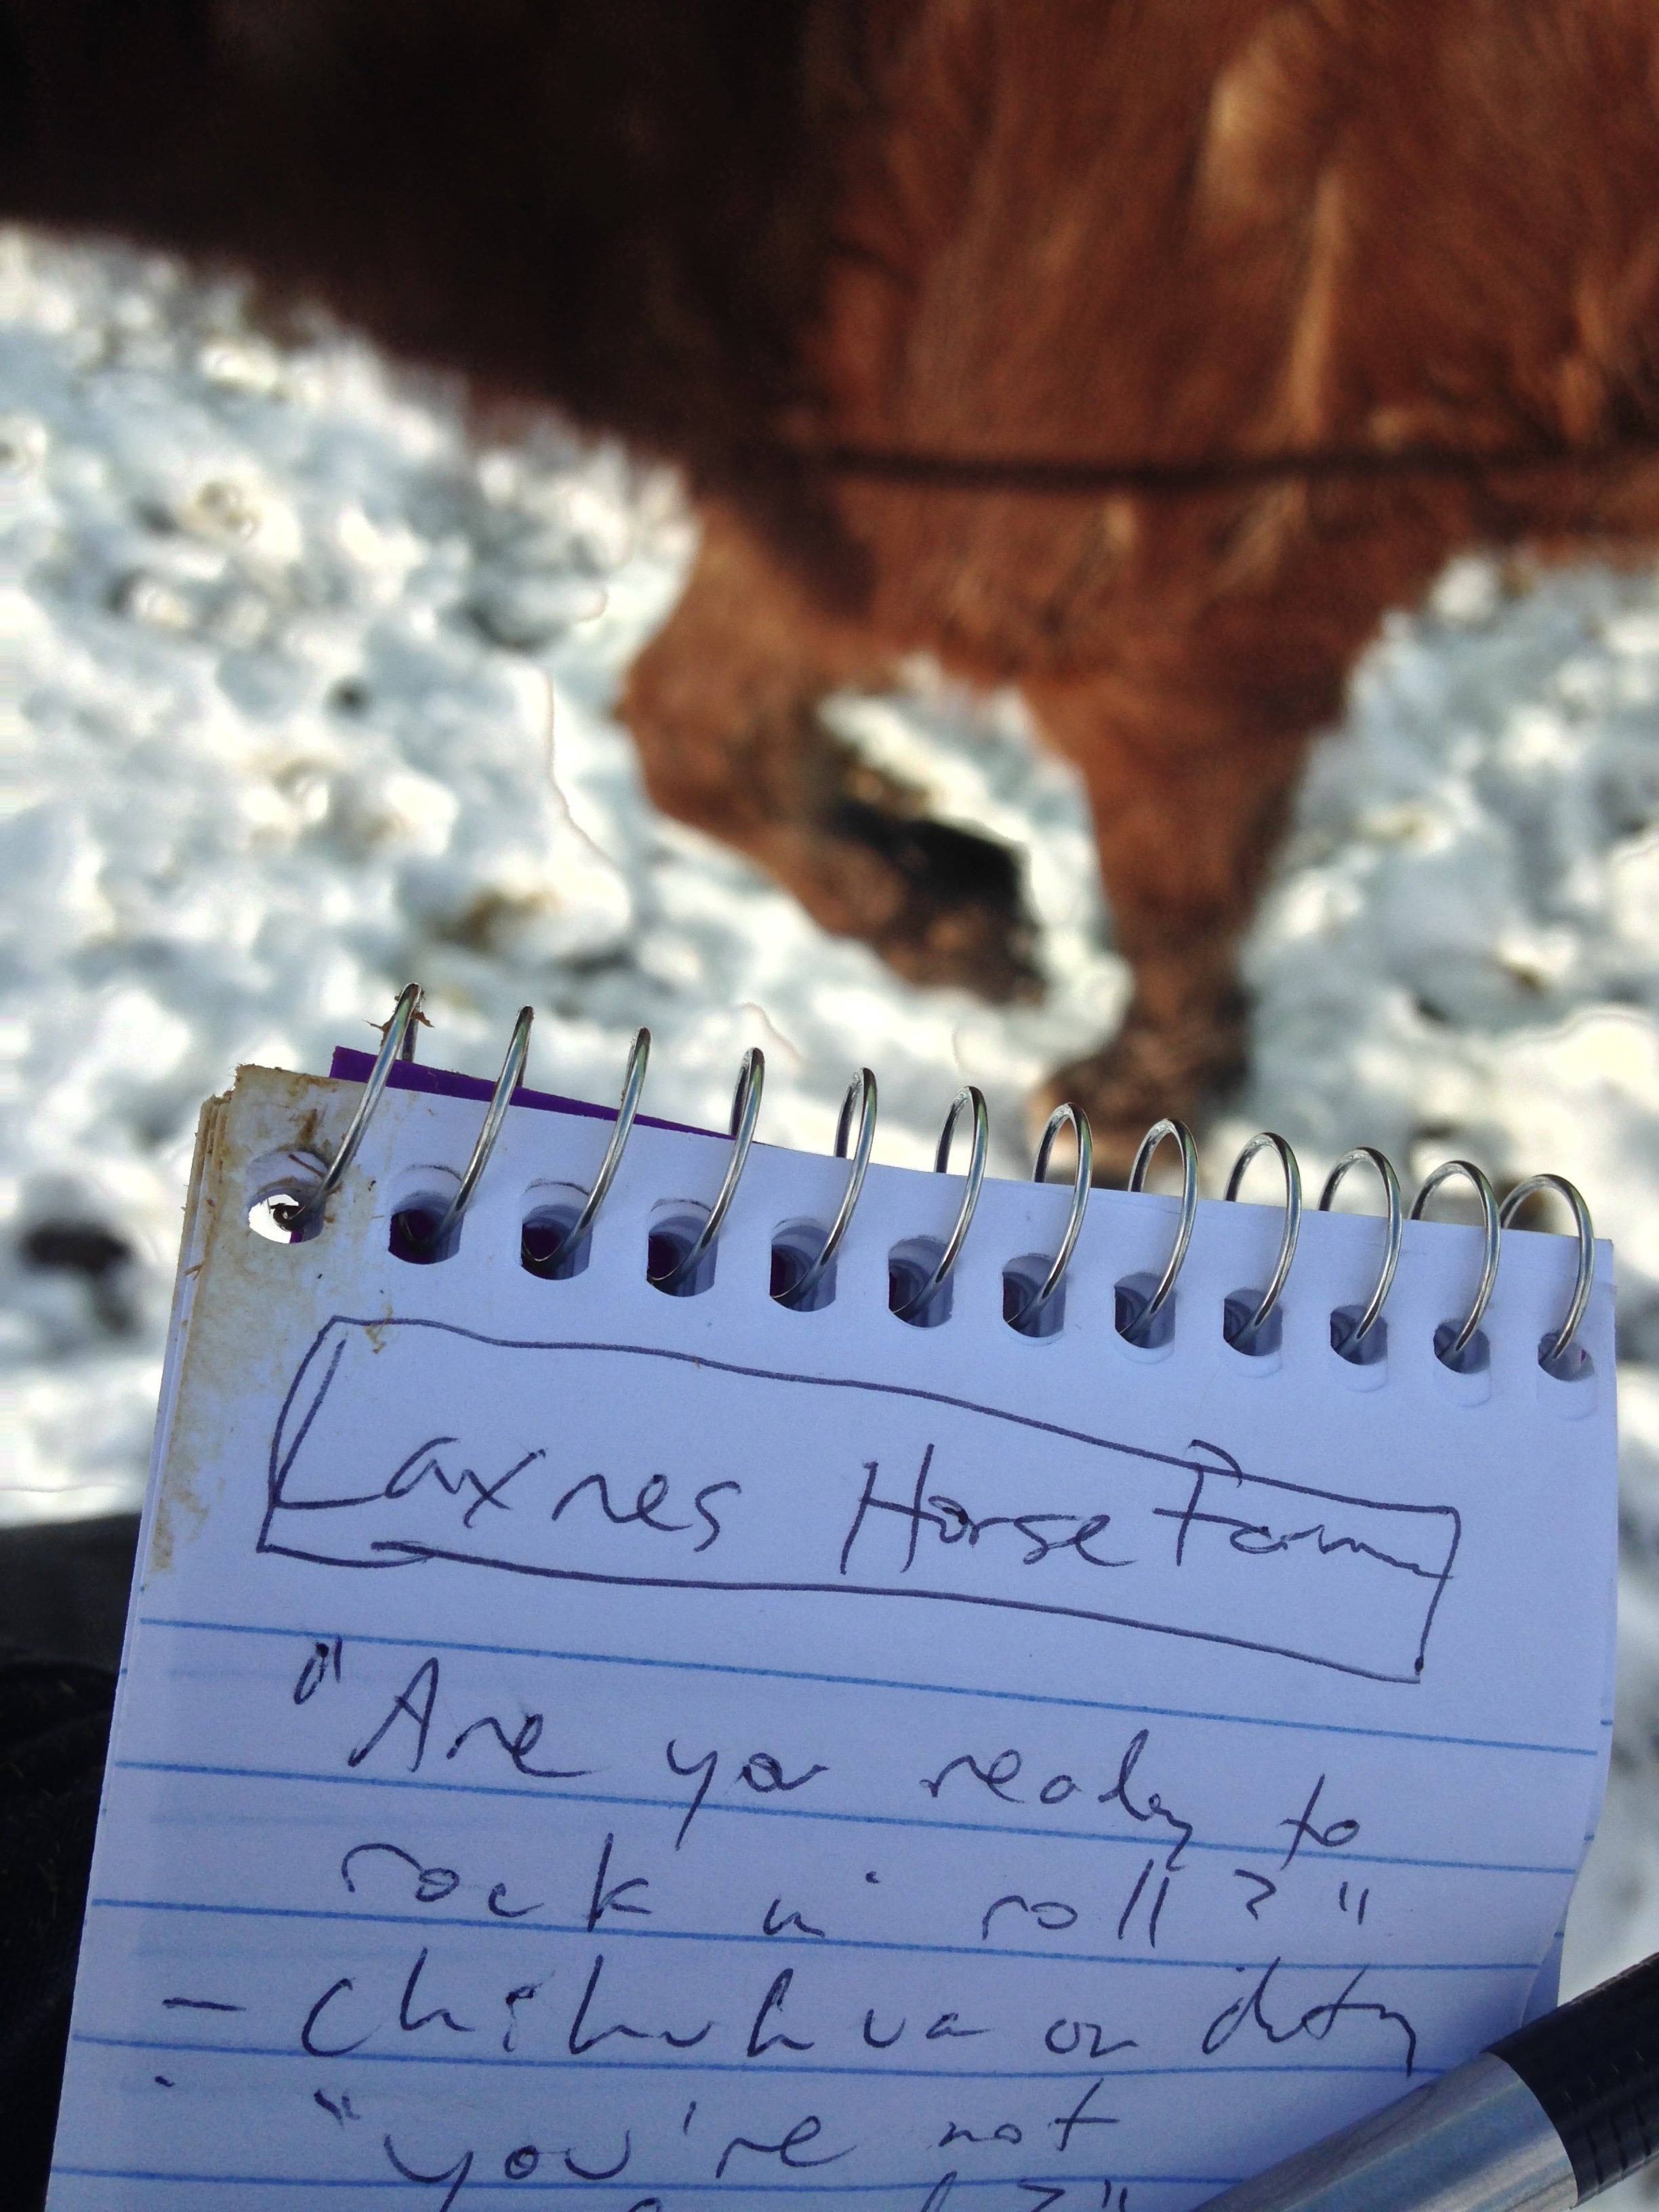 Laxnes Horse Farm
"Are you ready to
rock n' roll?"
- Chihuhua on duty
"you're not
?"